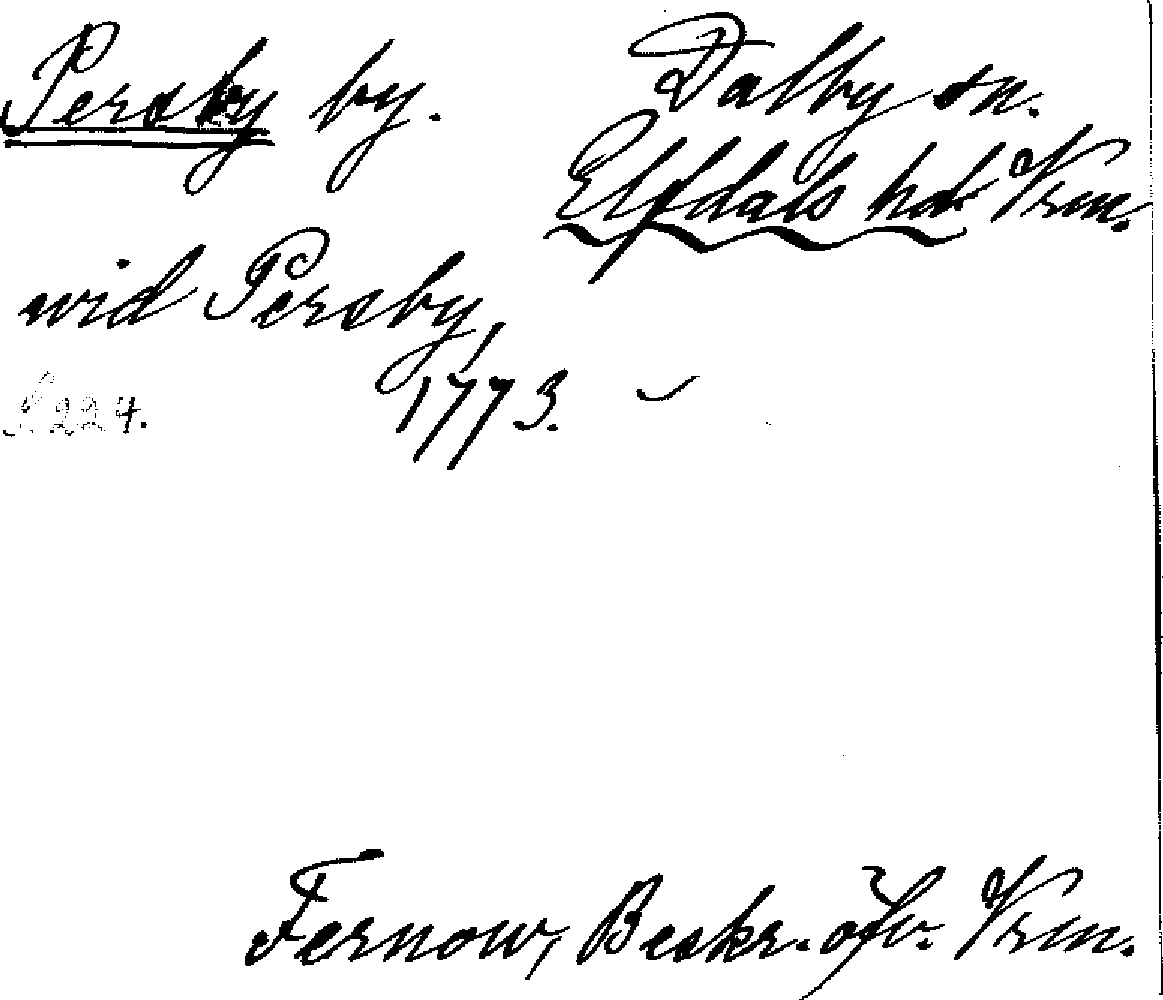 Persby by. Dalby sn.
Elfdals hd Vrm.
wid Persby,
s. 224. 1773.
Fernow, Beskr. öfv. Vrm.